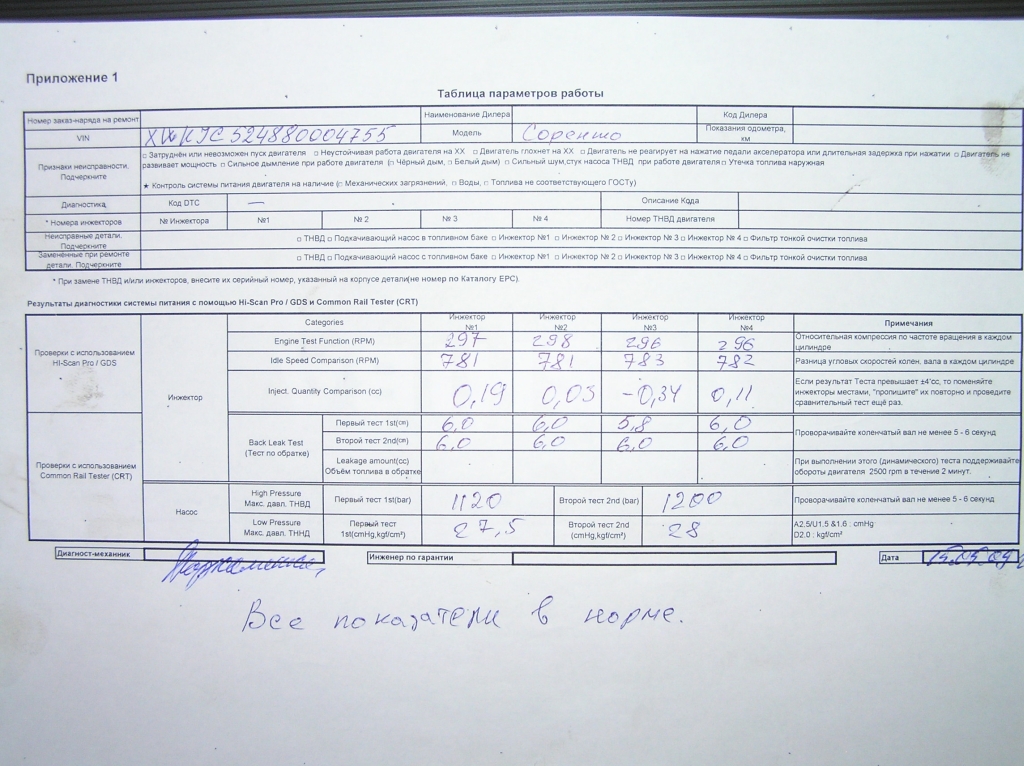 Приложение 1
Таблица параметров работы
Номер заказ-наряда на ремонт Наименование Дилера Код Дилера
VIN Модель Соренто Показания одометра, км
Признаки неисправности. Подчеркните
□ Затруднён или невозможен пуск двигателя □ Неустойчивая работа двигателя на ХХ □ Двигатель глохнет на ХХ □ Двигатель не реагирует на нажатие педали акселератора или длительная задержка при нажатии □ Двигатель не
развивает мощность □ Сильное дымление при работе двигателя (□ Чёрный дым, □ Белый дым) □ Сильный шум,стук насоса ТНВД при работе двигателя □ Утечка топлива наружная
★ Контроль системы питания двигателя на наличие (□ Механических загрязнений, □ Воды, □ Топлива не соответствующего ГОСТу)
Диагностика Код DTC — Описание Кода
* Номера инжекторов № Инжектора №1 № 2 № 3 № 4 Номер ТНВД двигателя
Неисправные детали. Подчеркните □ ТНВД □ Подкачивающий насос в топливном баке □ Инжектор №1 □ Инжектор № 2 □ Инжектор № 3 □ Инжектор № 4 □ Фильтр тонкой очистки топлива
Заменённые при ремонте детали. Подчеркните □ ТНВД □ Подкачивающий насос с топливном баке □ Инжектор №1 □ Инжектор № 2 □ Инжектор № 3 □ Инжектор № 4 □ Фильтр тонкой очистки топлива
* При замене ТНВД и/или инжекторов, внесите их серийный номер, указанный на корпусе детали(не номер по Каталогу EPC).
Результаты диагностики системы питания с помощью Hi-Scan Pro / GDS и Common Rail Tester (CRT)
Проверки с использованием HI-Scan Pro / GDS
Инжектор
Categories Инжектор №1 Инжектор №2 Инжектор №3 Инжектор №4 Примечания
Engine Test Function (RPM) 297 298 296 296 Относительная компрессия по частоте вращения в каждом цилиндре
Idle Speed Comparison (RPM) 781 781 783 782 Разница угловых скоростей колен. вала в каждом цилиндре
Inject. Quantity Comparison (cc) 0,19 0,03 -0,34 0,11 Если результат Теста превышает ±4'cc, то поменяйте инжекторы местами, "пропишите" их повторно и проведите сравнительный тест ещё раз.
Проверки с использованием Common Rail Tester (CRT)
Back Leak Test (Тест по обратке)
Первый тест 1st(cm) 6,0 6,0 5,8 6,0 Проворачивайте коленчатый вал не менее 5 - 6 секунд
Второй тест 2nd(cm) 6,0 6,0 6,0 6,0
Leakage amount(cc) Объём топлива в обратке При выполнении этого (динамического) теста поддерживайте обороты двигателя 2500 rpm в течение 2 минут.
Насос
High Pressure Макс. давл. ТНВД Первый тест 1st(bar) 1120 Второй тест 2nd (bar) 1200 Проворачивайте коленчатый вал не менее 5 - 6 секунд
Low Pressure Макс. давл. ТННД Первый тест 1st(cmHg,kgf/cm²) 27,5 Второй тест 2nd (cmHg,kgf/cm²) 28 A2.5/U1.5 &1.6 : cmHg D2.0 : kgf/cm²
Диагност-механник Инженер по гарантии Дата
Все показатели в норме.